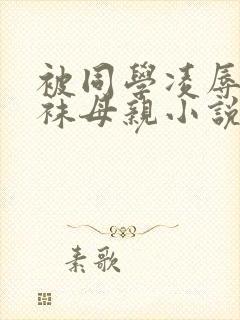 被同學凌辱
袜母親小説
素歌